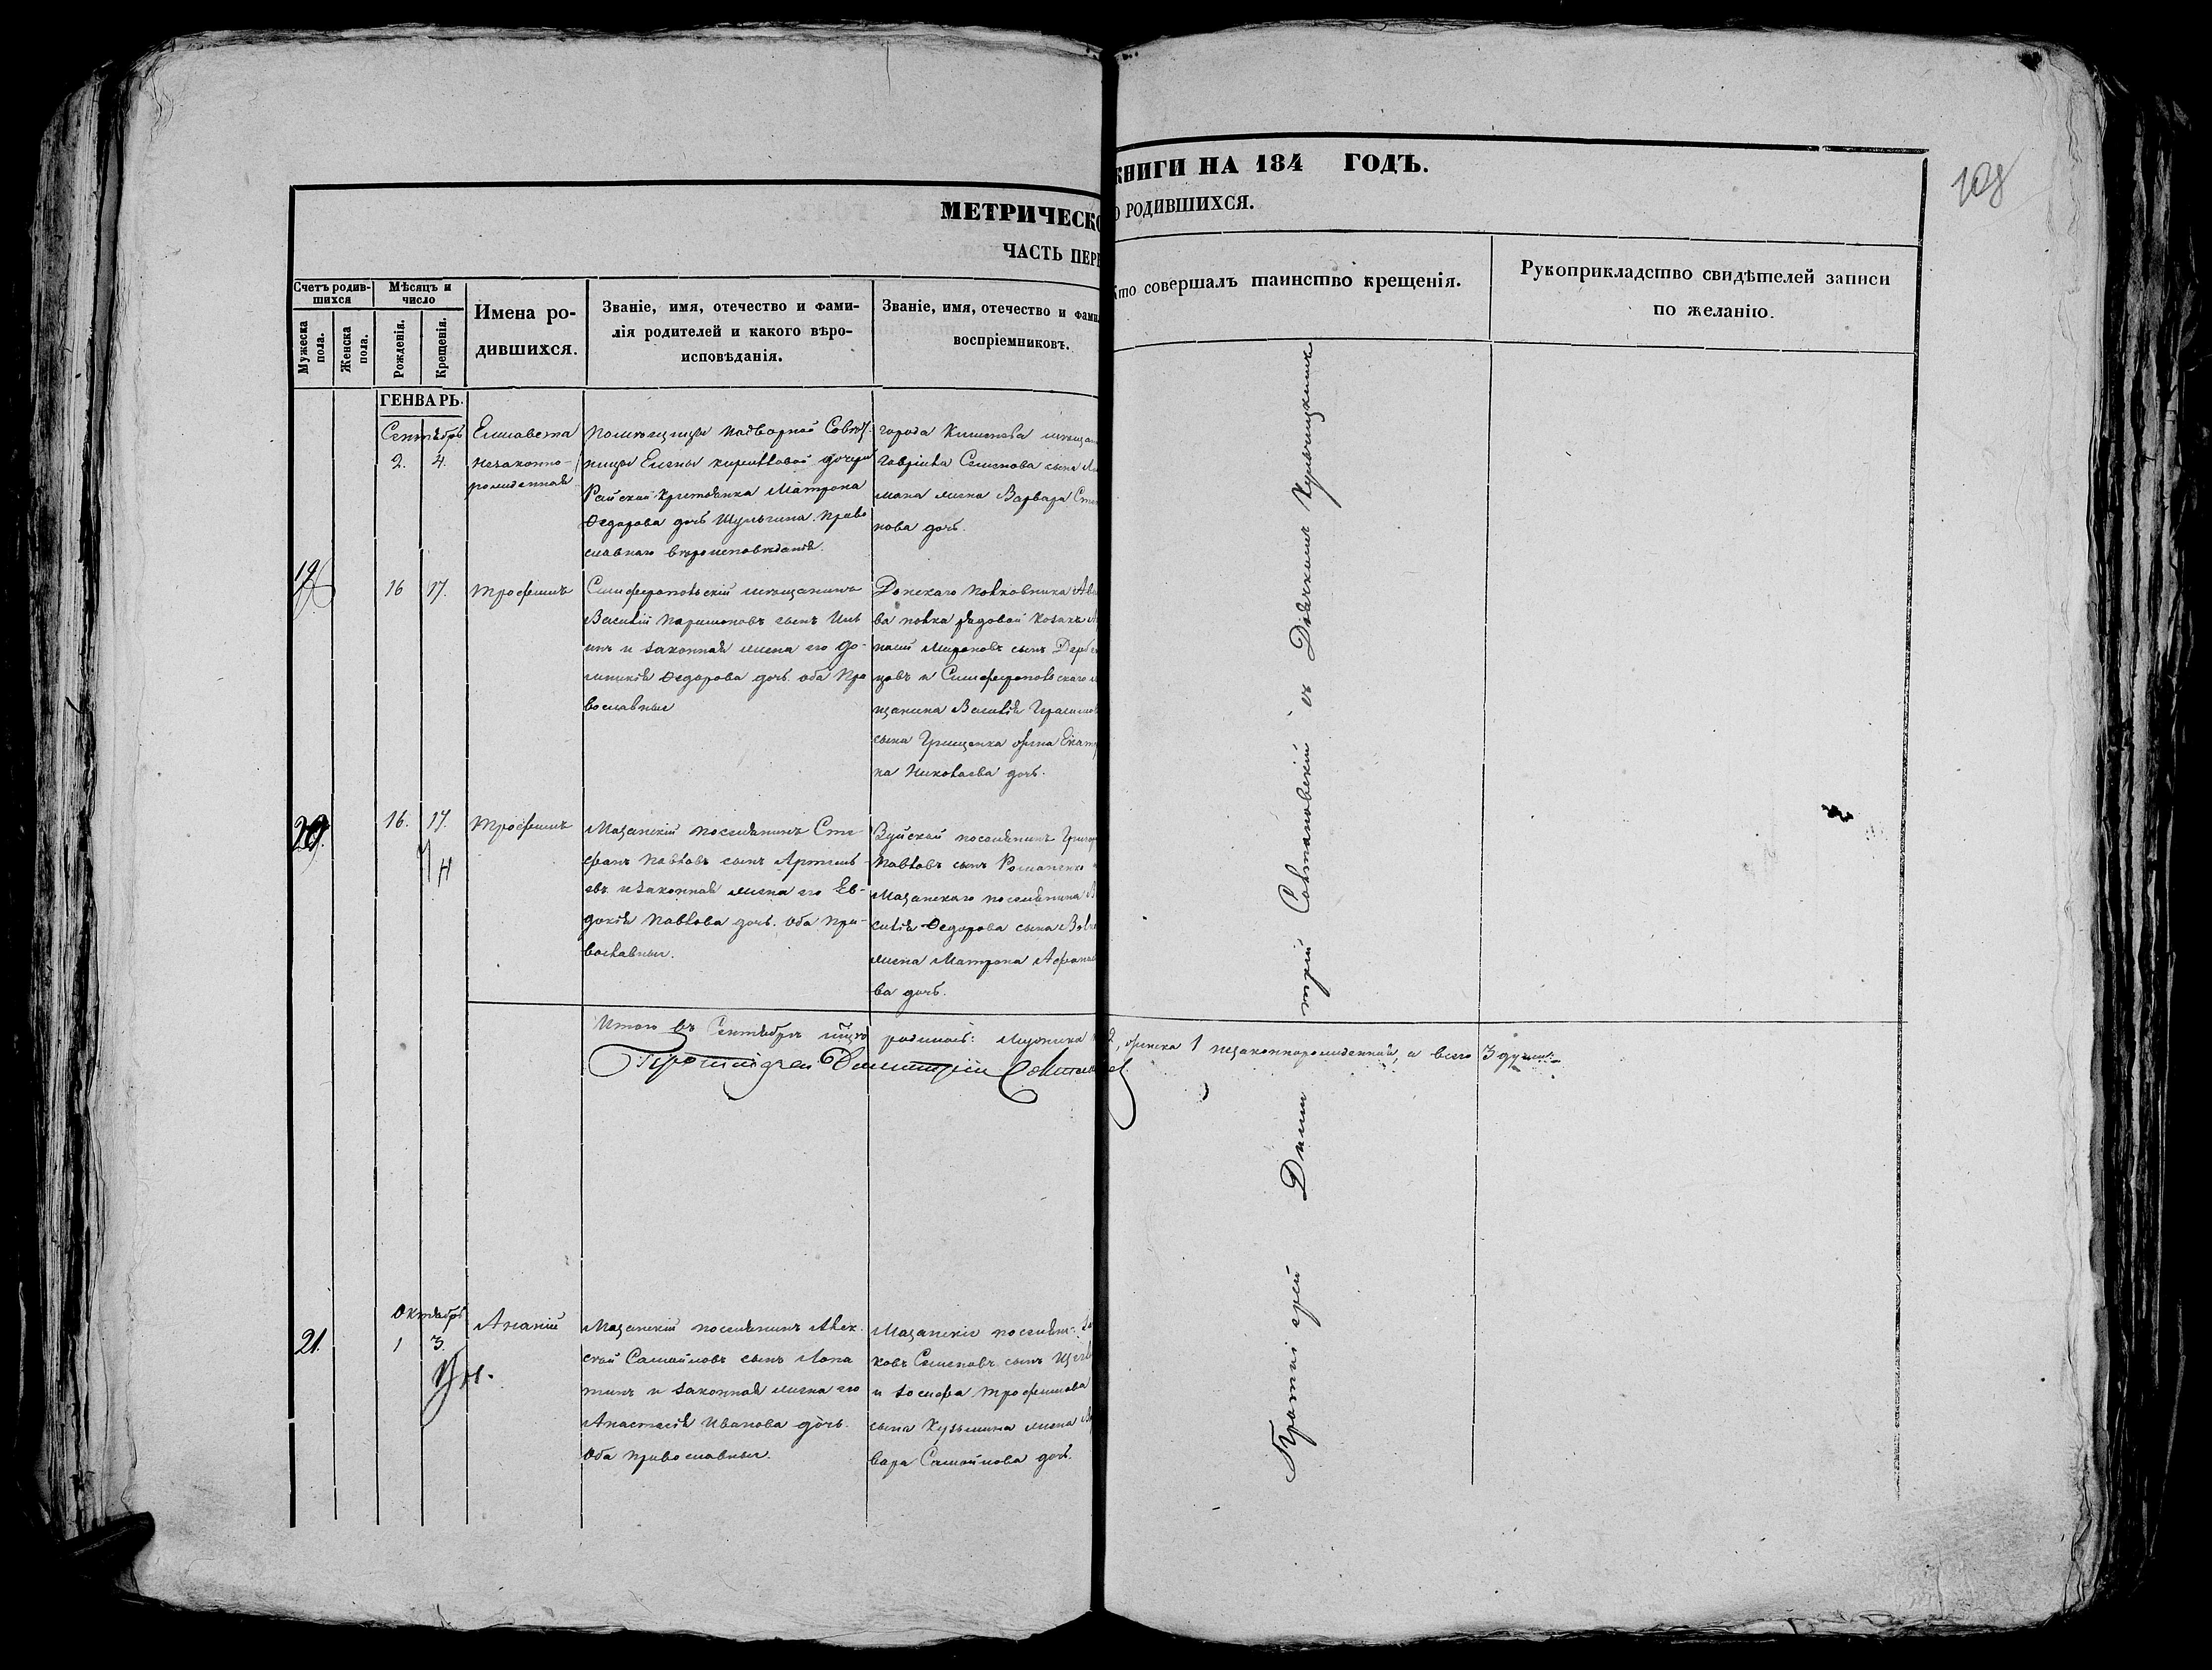 108
МЕТРИЧЕСКО
КНИГИ НА 184 ГОДЪ.
ЧАСТЬ ПЕРВ
О РОДИВШИХСЯ.
Счетъ родив-
шихся
Мужеска пола.
Женска пола.
Мѣсяцъ и
число
Рожденія.
Крещенія.
Имена ро-
дившихся.
Званіе, имя, отечество и фами-
лія родителей и какого вѣро-
исповѣданія.
Званіе, имя, отечество и фами
воспріемниковъ.
Кто совершалъ таинство крещенія.
Рукоприкладство свидѣтелей записи
по желанію.
ГЕНВАРЬ.
Сентябрь
2. 4.
Елисавета
незаконно-
рожденная
Помѣщицы Надворной Совѣт
ницы Елены дочери
крестьянка Матрона
Ѳедорова дочь Шульгина. Право
славнаго вѣроисповѣданія.
города Кишенева мѣщан
Гавріила Семенова сына
жена Варвара
нова дочь.
19
16 17.
Трофимъ
Симферопольскій мѣщанинъ
Василій Парамоновъ сынъ Иль
инъ и законная жена его До-
мникія Ѳедорова дочь. оба Пра
вославные
Донскаго Полковника
ва полка рядовой Козакъ
Мироновъ сынъ
цовъ и Симферопольскаго м
щанина Василія Герасимов
сына Грищенка жена Екатер
на Николаева дочь.
20.
16. 17.
Трофимъ
Мазанскій поселянинъ Сте-
фанъ Павловъ сынъ Артемь
евъ и законная жена его Ев-
докія Павлова дочь. Оба Пра-
вославные.
Зуйской поселянинъ Григор
Павловъ сынъ Романенко
Мазанскаго поселянина В
силія Ѳедорова сына
жена Матрона Афанась
ва дочь.
Итого въ Сентябрѣ м̃цѣ родилось: мужеска 2, женска 1 незаконнорожденная, а всего 3 души
Протоіерей Димитрій Солтанов
Октябрь
21. 1 3.
Ананій
Мазанскій поселянинъ Алек
сѣй Самойловъ сынъ Лопа
тинъ и законная жена его
Анастасія Иванова дочь.
Оба православные.
Мазанскіе поселян:
ковъ Семеновъ сынъ
и Іосифа Трофимова
сына Кузьмина жена Ва
вара Самойлова дочь.
Протоіерей Димитрій Солтановскій съ Дьячкомъ